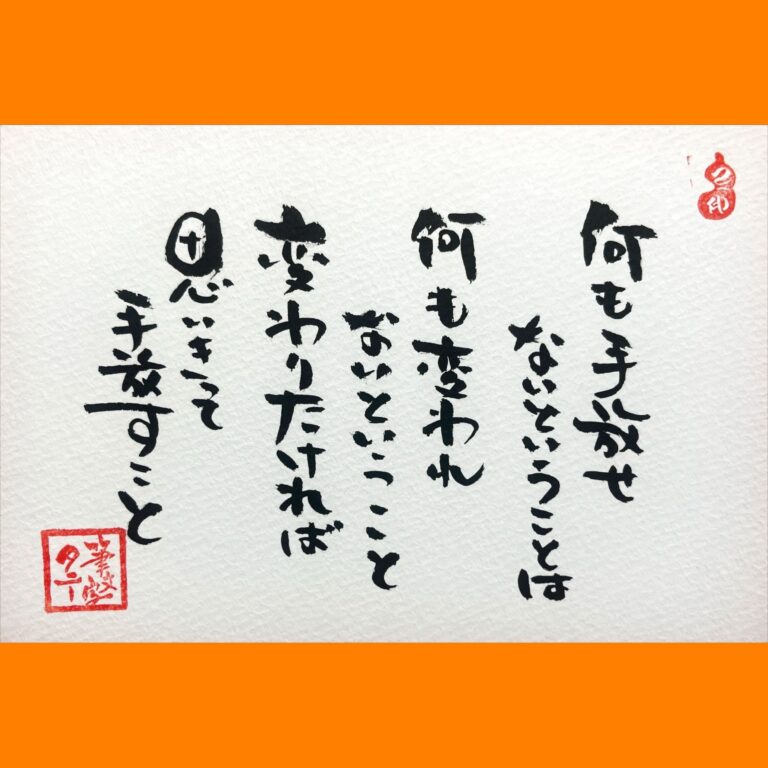 何も手放せ
ないということは
何も変われ
ないということ
変わりたければ
思いきって
手放すこと